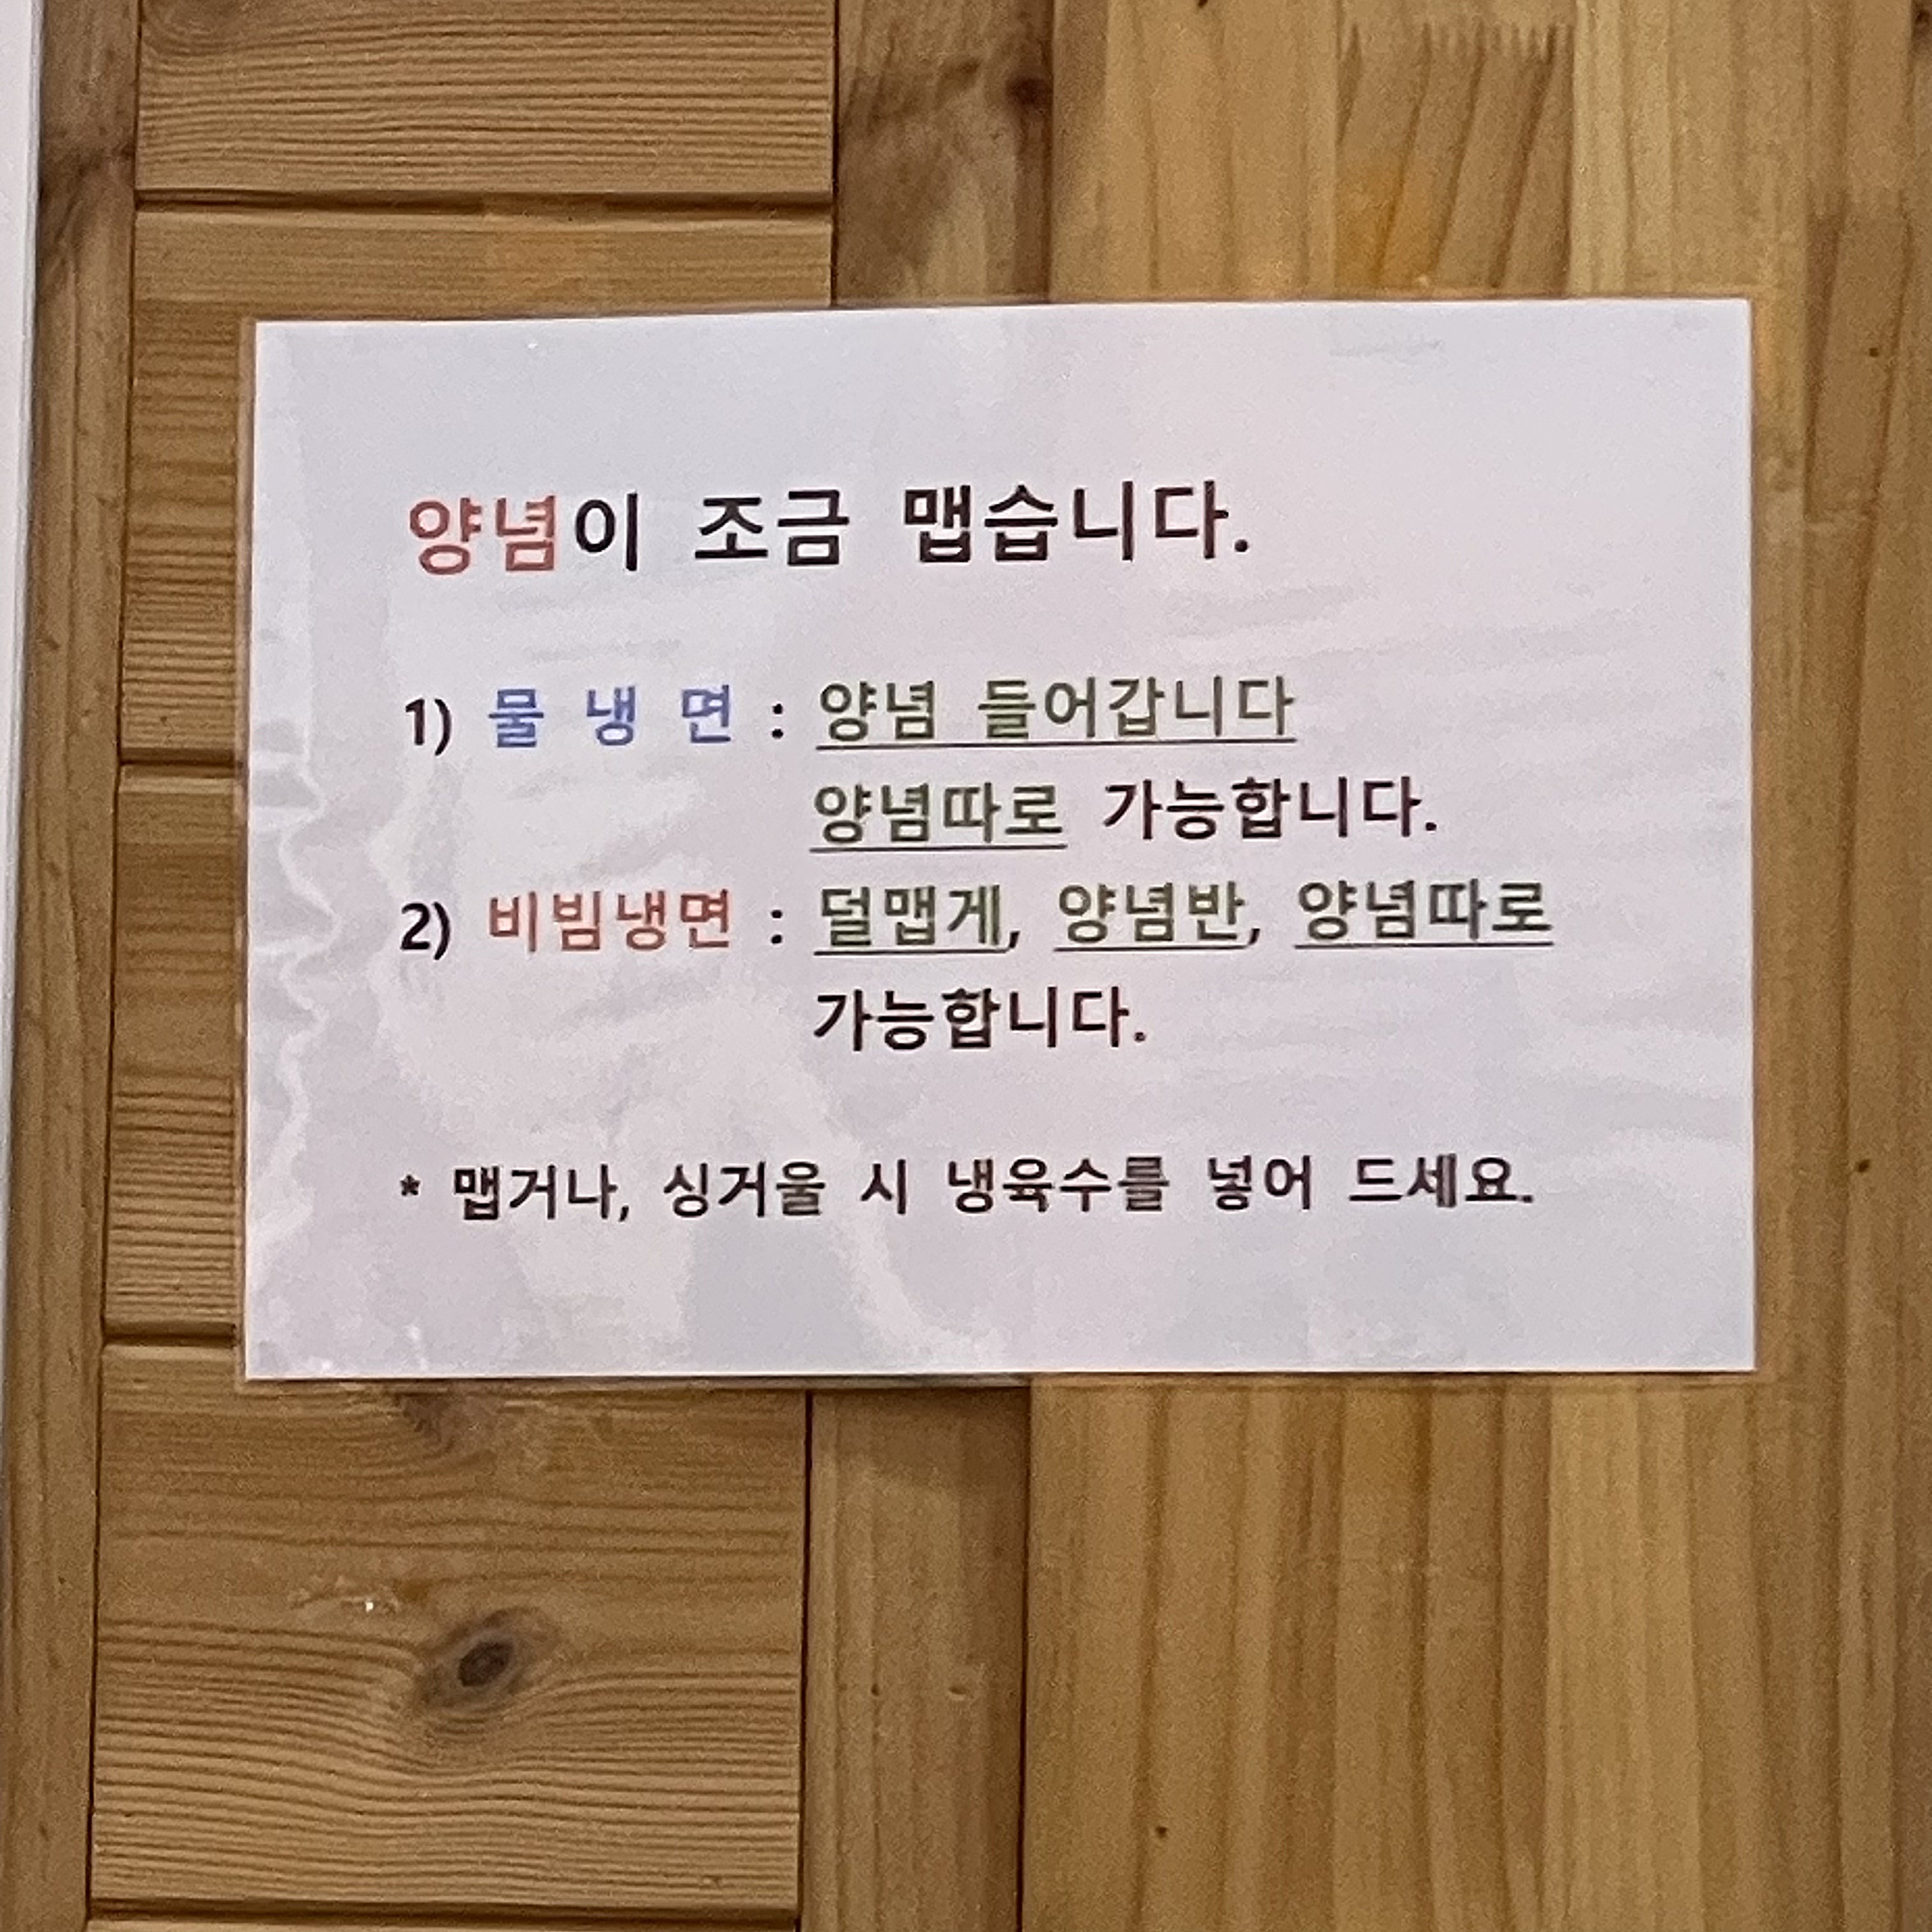 양념이 조금 맵습니다.
1) 물 냉 면 : 양념 들어갑니다
양념따로 가능합니다.
2) 비빔냉면 : 덜맵게, 양념반, 양념따로
가능합니다.
* 맵거나, 싱거울 시 냉육수를 넣어 드세요.